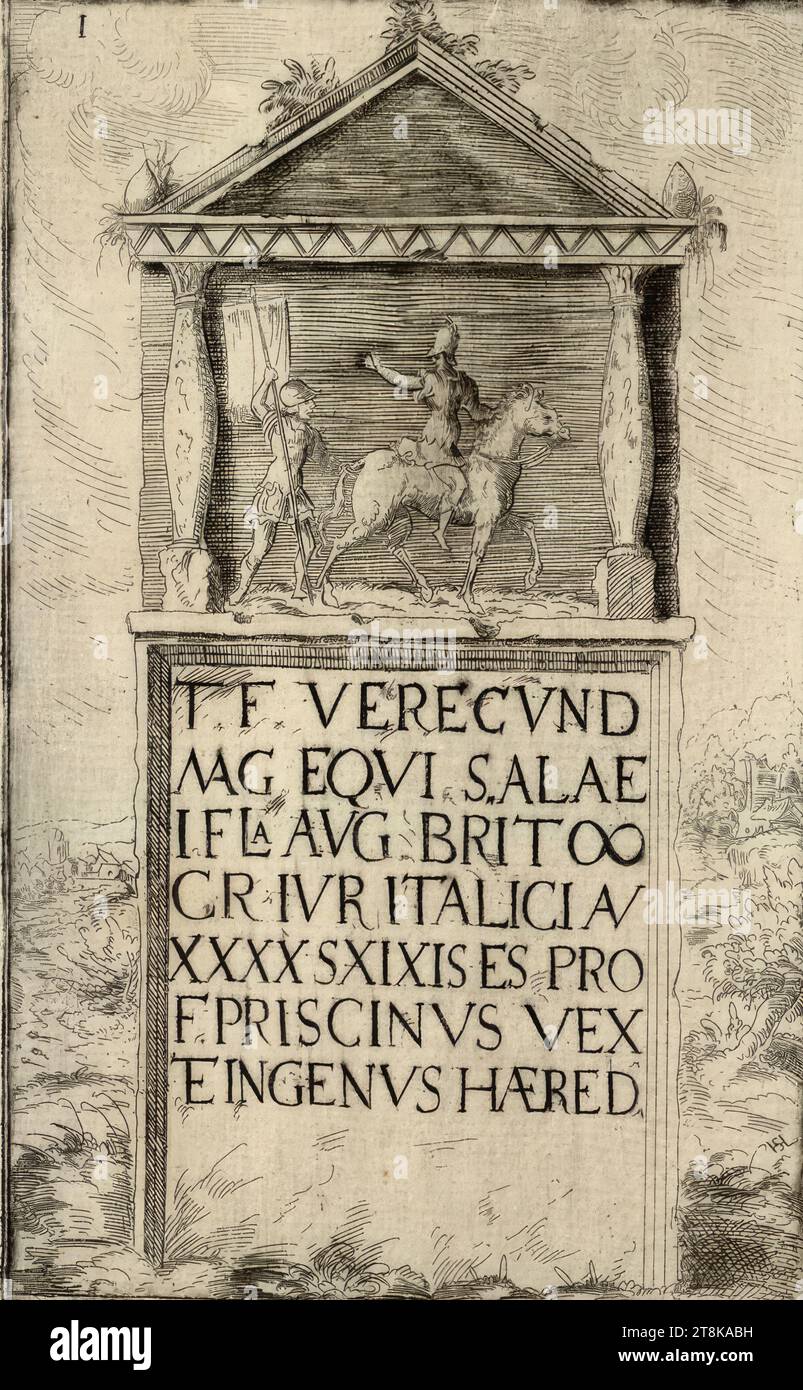 1
T F VERECVND
MAG EQVI S,ALAE
I.FLA AVG.BRIT∞
C R IVR ITALICI AV
XXXX SXIXIS ES PRO
F.PRISCINVS VEX
T INGENVS HÆRED,
HSL
alamy
alamy
Image ID: 2T8KABH
www.alamy.com